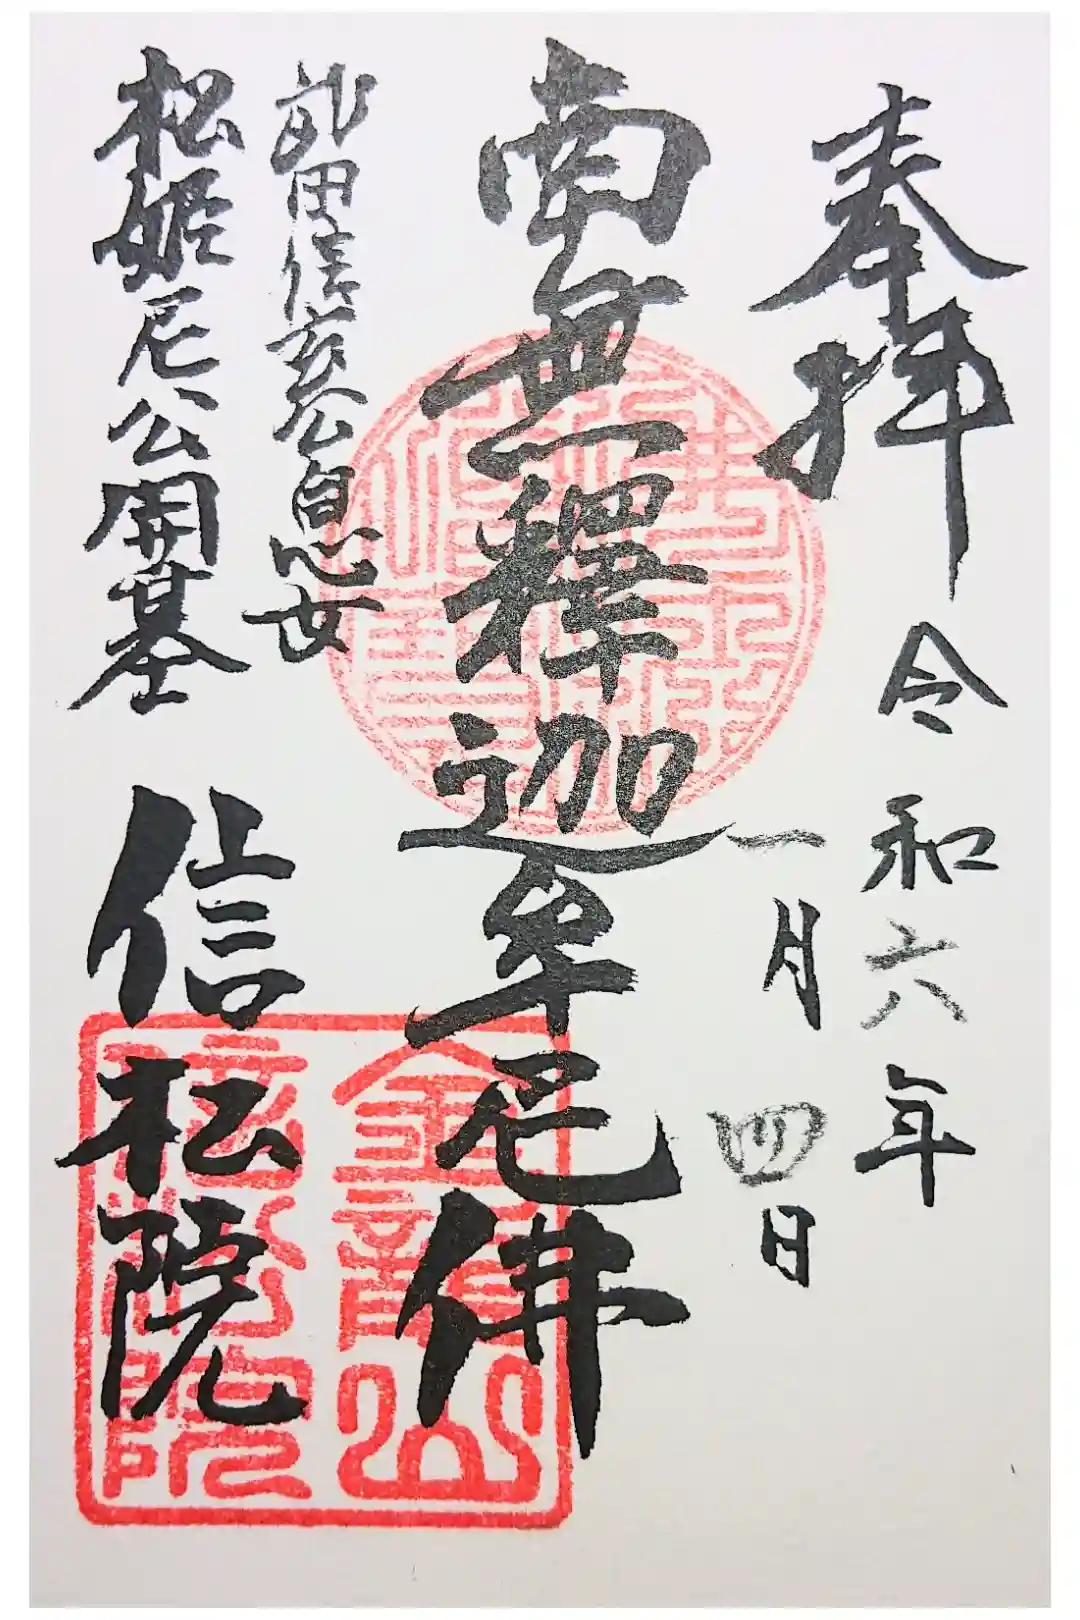 奉拝
令和六年
一月四日
南無釋迦牟尼佛
武田信玄公息女
松姫尼公開基
信松院
金龍山
信松院